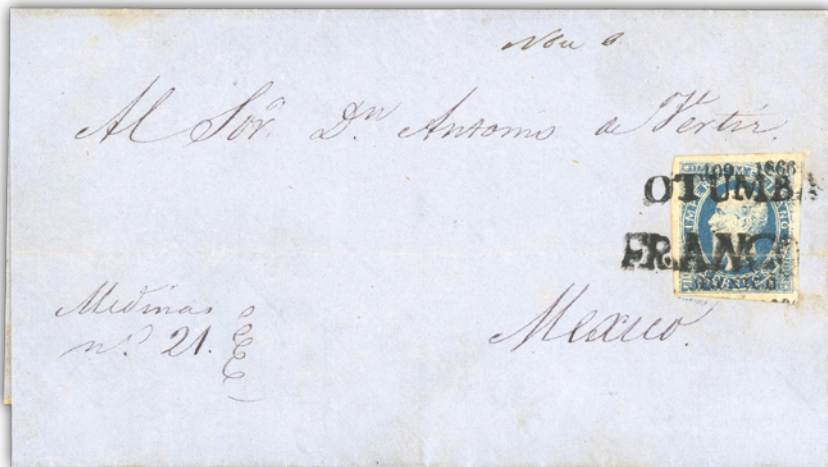 Nov 6
Al Sor. Dn Antonio de Vertiz.
100 1866
OTUMBA
FRANCO
MEXICO
Medinas
no. 21.
Mexico.